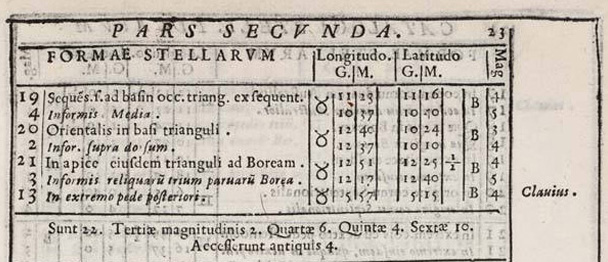 PARS SECVNDA. 23
FORMAE STELLARVM Longitudo. Latitudo Mag
G. M. G. M.
19 Sequēs.f.ad basin occ.triang. exsequent. ♉ 11 23 11 16 B 4
4 Informis Media. 10 37 10 40 5
20 Orientalis in basi trianguli. ♉ 12 40 10 24 B 3
2 Infor. supra dorsum. 12 37 10 10 5
21 In apice eiusdem trianguli ad Boream. ♉ 12 51 12 25 ½ B 4
3 Informis reliquarū trium paruarū Borea. 12 17 12 40 5
13 In extremo pede posteriori. ♉ 15 57 5 15 B 4
Clauius.
Sunt 22. Tertiæ magnitudinis 2. Quartæ 6. Quintæ 4. Sextæ 10.
Accesserunt antiquis 4.